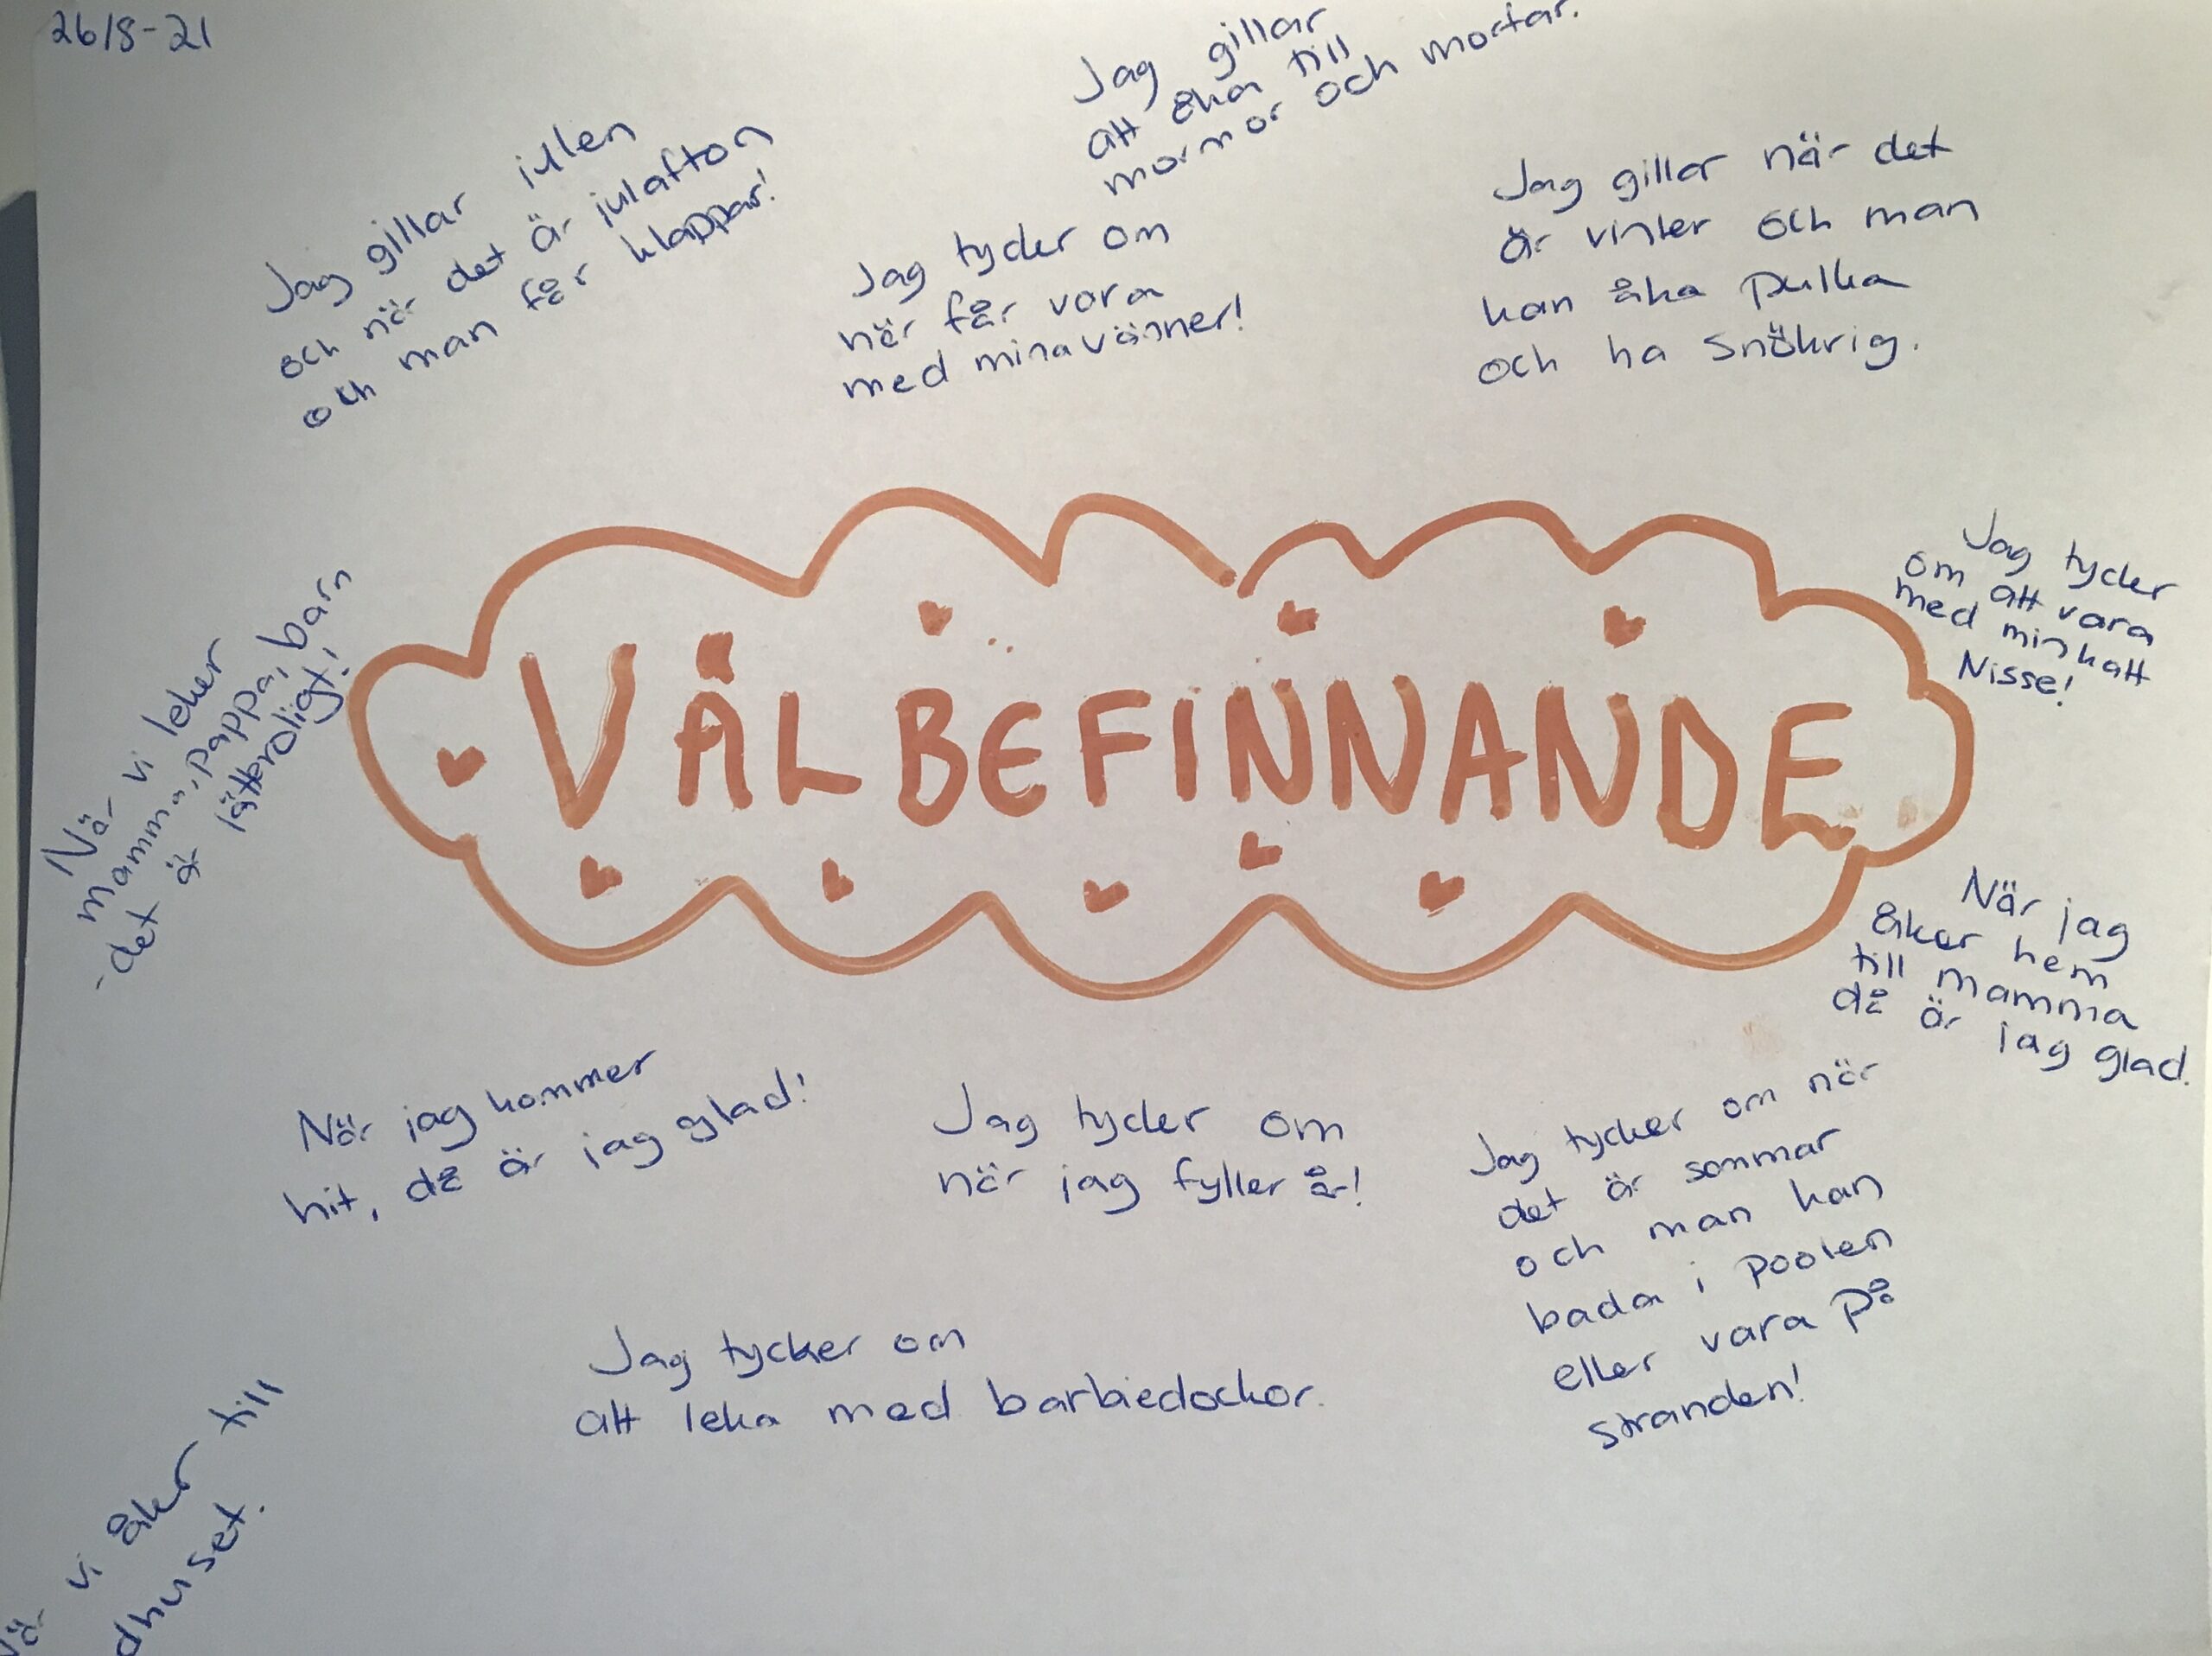 26/8-21
Jag gillar julen
och när det är julafton
och man får klappar!
Jag gillar
att åka till
mormor och morfar.
Jag tycker om
när får vara
med mina vänner!
Jag gillar när det
är vinter och man
kan åka pulka
och ha snökrig.
Jag tycker
om att vara
med min katt
Nisse!
VÄLBEFINNANDE
När vi leker
mamma, pappa, barn
det är jätteroligt!
När jag
åker hem
till mamma
då är jag glad.
När jag kommer
hit, då är jag glad!
Jag tycker om
när jag fyller år!
Jag tycker om när
det är sommar
och man kan
bada i poolen
eller vara på
stranden!
Jag tycker om
att leka med barbiedockor.
När vi åker till
dhuset.